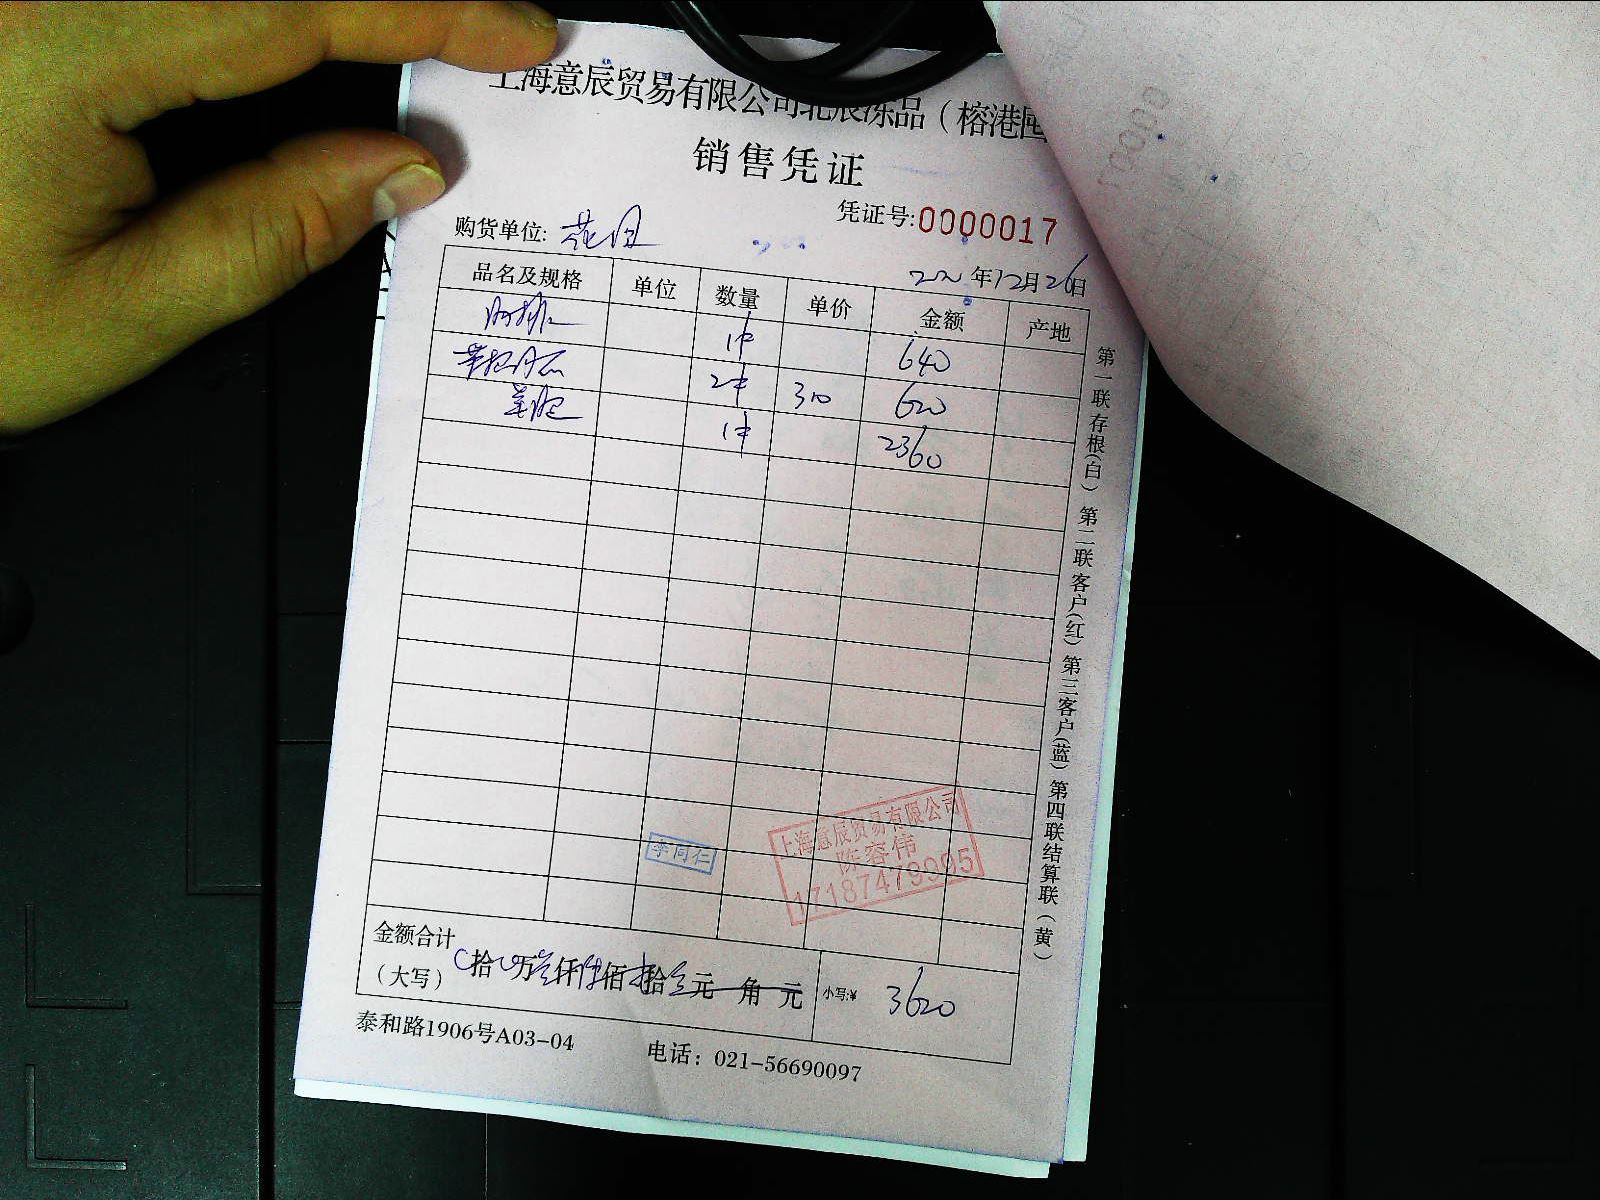 上海意辰贸易有限公司北辰冻品（榕港
销售凭证
凭证号:0000017
购货单位: 花月
年12月26日
品名及规格 单位 数量 单价 金额 产地
1件 640
2件 310 620
1件 2360
第一联存根(白) 第二联客户(红) 第三客户(蓝) 第四联结算联(黄)
李同仁
上海意辰贸易有限公司
陈容伟
17187479995
金额合计
（大写） 拾 万 仟 佰 拾 元 角 元 小写:¥ 3620
泰和路1906号A03-04 电话：021-56690097